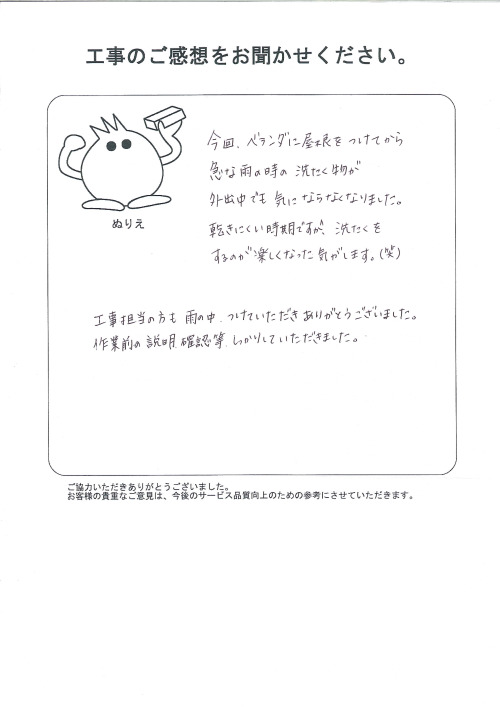 工事のご感想をお聞かせください。
今回、ベランダに屋根をつけてから
急な雨の時の洗たく物が
外出中でも気にならなくなりました。
乾きにくい時期ですが、洗たくを
するのが楽しくなった気がします。(笑)
ぬりえ
工事担当の方も雨の中、つけていただきありがとうございました。
作業前の説明、確認等、しっかりしていただきました。
ご協力いただきありがとうございました。
お客様の貴重なご意見は、今後のサービス品質向上のための参考にさせていただきます。